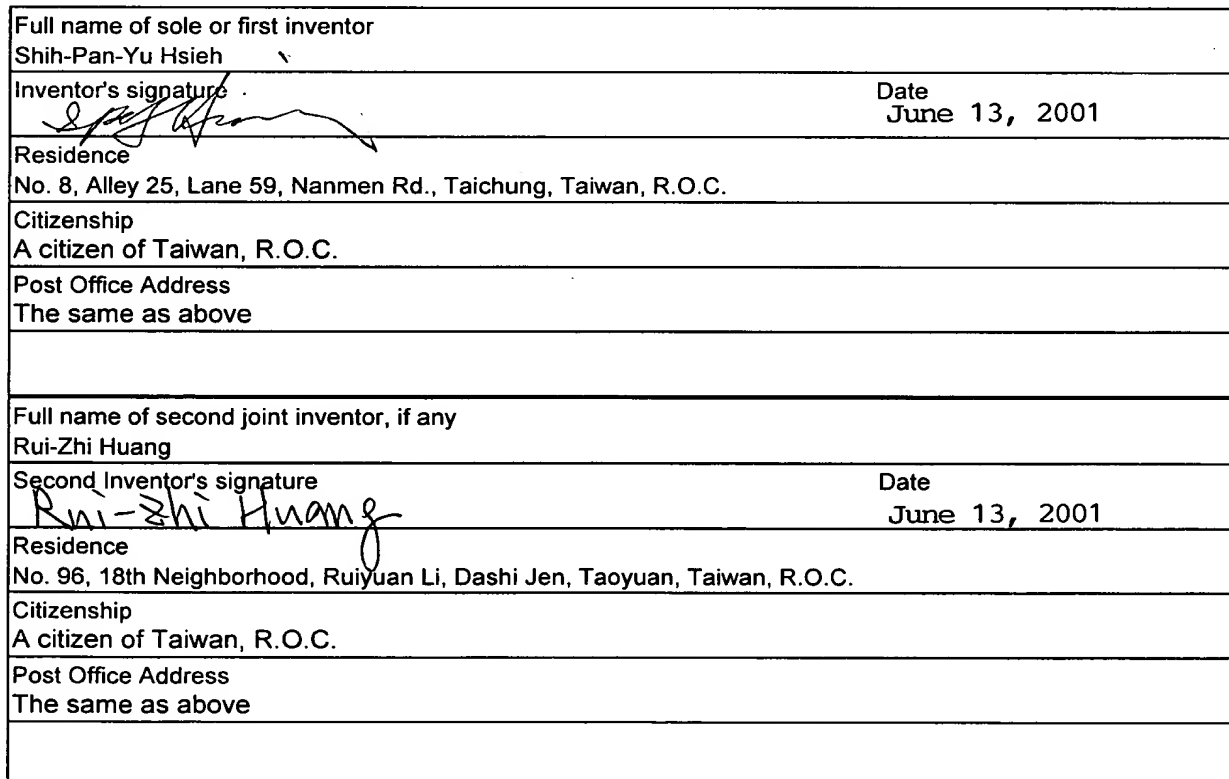 Full name of sole or first inventor
Shih-Pan-Yu Hsieh
Inventor's signature
Date
June 13, 2001
Residence
No. 8, Alley 25, Lane 59, Nanmen Rd., Taichung, Taiwan, R.O.C.
Citizenship
A citizen of Taiwan, R.O.C.
Post Office Address
The same as above
Full name of second joint inventor, if any
Rui-Zhi Huang
Second Inventor's signature
Rui-Zhi Huang
Date
June 13, 2001
Residence
No. 96, 18th Neighborhood, Ruiyuan Li, Dashi Jen, Taoyuan, Taiwan, R.O.C.
Citizenship
A citizen of Taiwan, R.O.C.
Post Office Address
The same as above